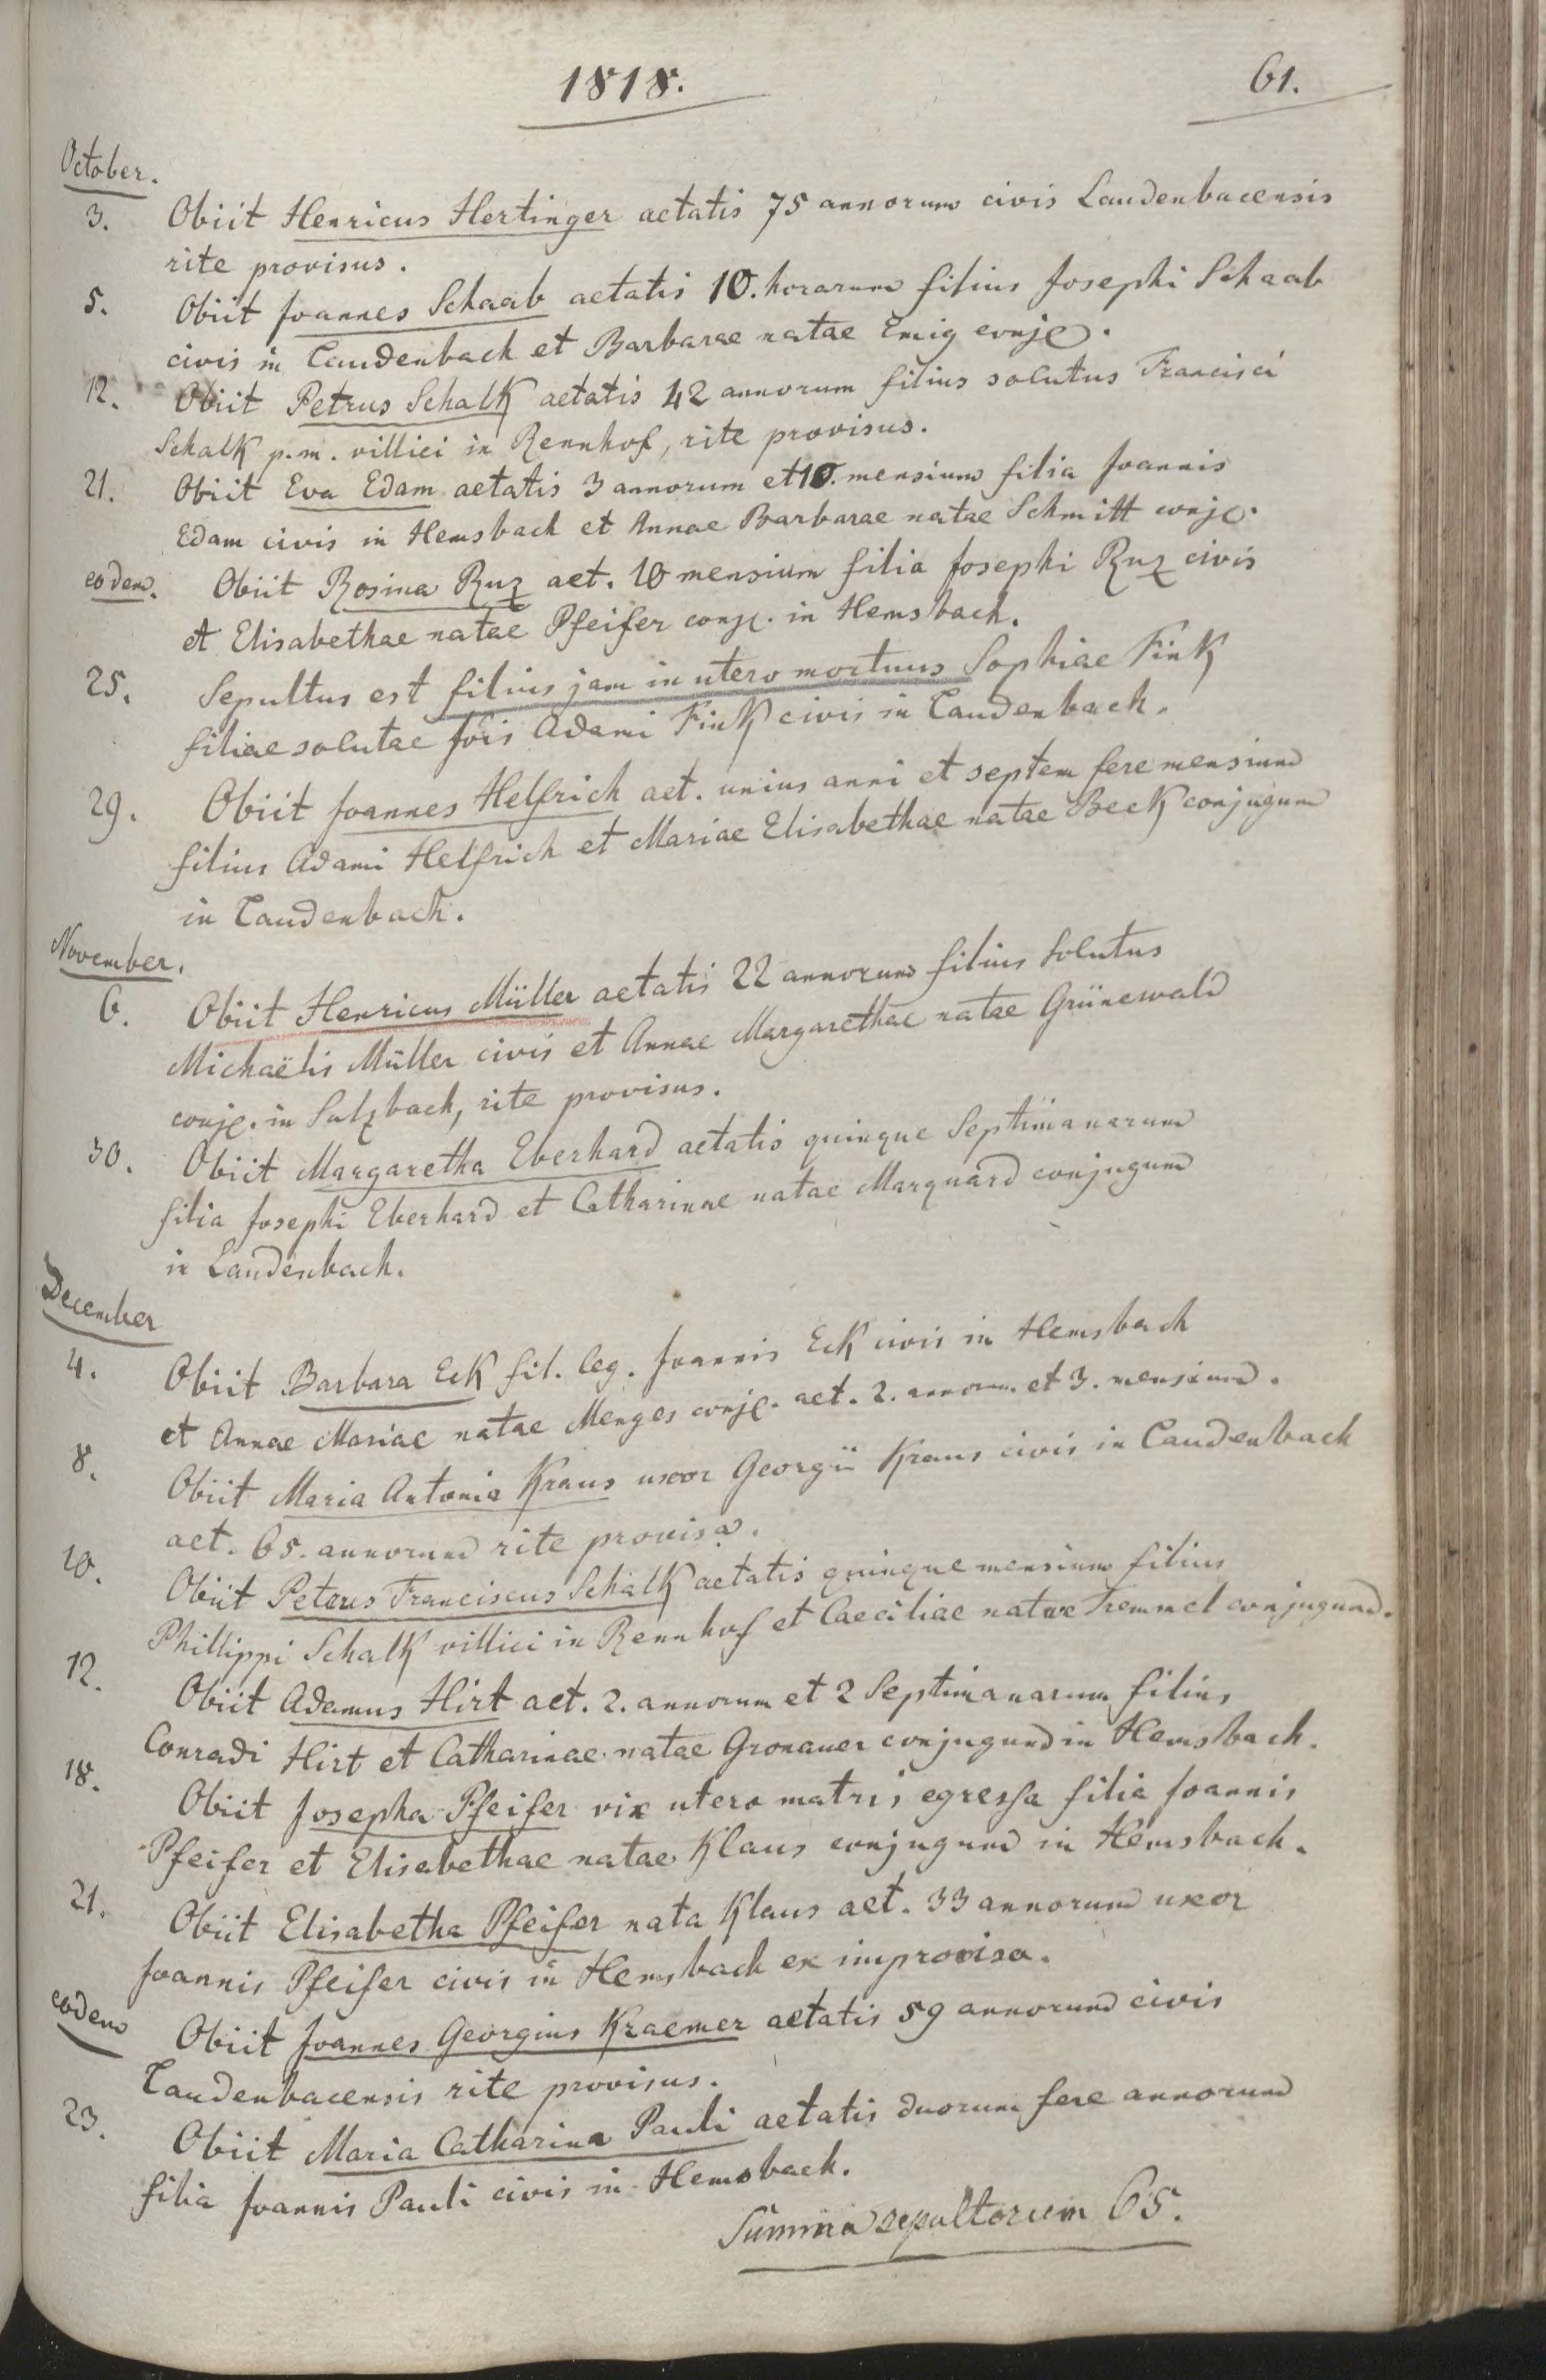 1818.
61.
October.
3. Obiit Henricus Hertinger aetatis 75 annorum civis Laudenbacensis
rite provisus.
5. Obiit Joannes Schaab aetatis 10. horarum filius Josephi Schaab
civis in Laudenbach et Barbarae natae Emig conjg.
12. Obiit Petrus Schalk aetatis 42 annorum filius solutus Francisci
Schalk p.m. villici in Rennhof, rite provisus.
21. Obiit Eva Edam aetatis 3 annorum et 10. mensium filia Joannis
Edam civis in Hemsbach et Annae Barbarae natae Schmitt conjg.
eodem. Obiit Rosina Ruz aet. 10 mensium filia Josephi Ruz civis
et Elisabethae natae Pfeifer conjg. in Hemsbach.
25. Sepultus est filius jam in utero mortuus Sophiae Fink
filiae solutae Adami Fink civis in Laudenbach.
29. Obiit Joannes Helfrich aet. unius anni et septem fere mensium
filius Adami Helfrich et Mariae Elisabethae natae Beck conjugum
in Laudenbach.
November.
6. Obiit Henricus Müller aetatis 22 annorum filius solutus
Michaëlis Müller civis et Annae Margarethae natae Grünewald
conjg. in Sulzbach, rite provisus.
30. Obiit Margaretha Eberhard aetatis quinque Septimanarum
filia Josephi Eberhard et Catharinae natae Marquard conjugum
in Laudenbach.
December
4. Obiit Barbara Eck fil. leg. Joannis Eck civis in Hemsbach
et Annae Mariae natae Menges conjg. aet. 2. annorum. et 3. mensium.
8. Obiit Maria Antonia Kraus uxor Georgii Kraus civis in Laudenbach
aet. 65. annorum rite provisa.
10. Obiit Peterus Franciscus Schalk aetatis quinque mensium filius
Phillippi Schalk villici in Rennhof et Caeciliae natae Tremmel conjugum.
12. Obiit Adamus Hirt aet. 2. annorum et 2 Septimanarum filius
Conradi Hirt et Catharinae natae Gronauer conjugum in Hemsbach.
18. Obiit Josepha Pfeifer vix utero matris egressa filia Joannis
Pfeifer et Elisabethae natae Klaus conjugum in Hemsbach.
21. Obiit Elisabetha Pfeifer nata Klaus aet. 33 annorum uxor
Joannis Pfeifer civis in Hemsbach ex improviso.
eodem Obiit Joannes Georgius Kraemer aetatis 59 annorum civis
Laudenbacensis rite provisus.
23. Obiit Maria Catharina Pauli aetatis duorum fere annorum
filia Joannis Pauli civis in Hemsbach.
Summa sepultorum 65.